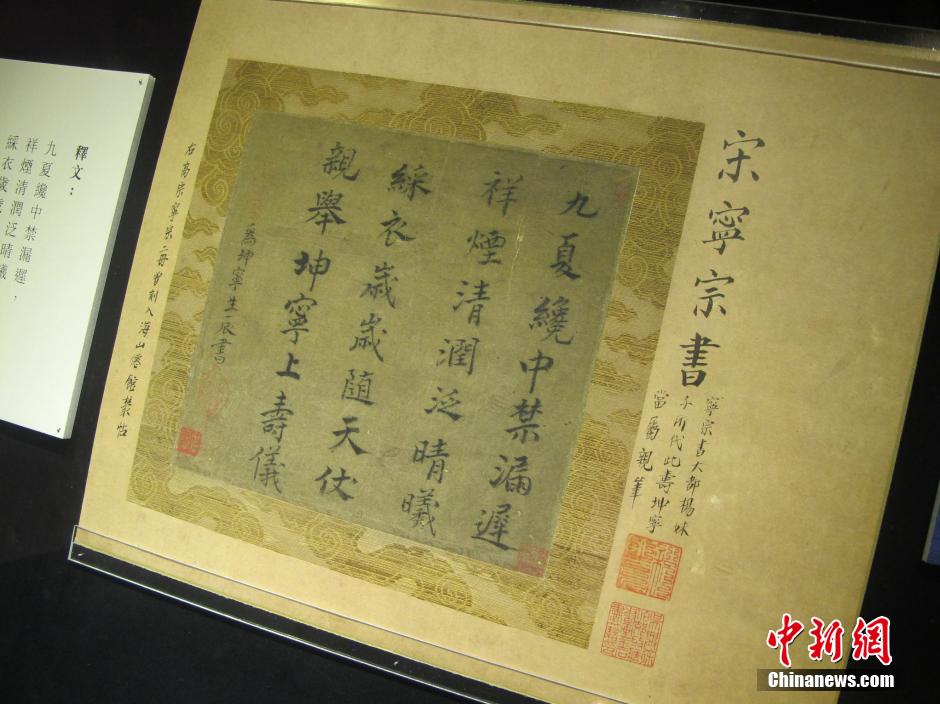 宋寧宗書
寧宗書大都楊妹
子所代此壽坤寧
當屬親筆
九夏纔中禁漏遲
祥煙清潤泛晴曦
綵衣歲歲隨天仗
親舉坤寧上壽儀
坤寧生辰書
右高宗寧宗二冊曾刻入海山僊館禁帖
釋文：
九夏纔中禁漏遲，
祥煙清潤泛晴曦
綵衣歲歲
中新網
Chinanews.com